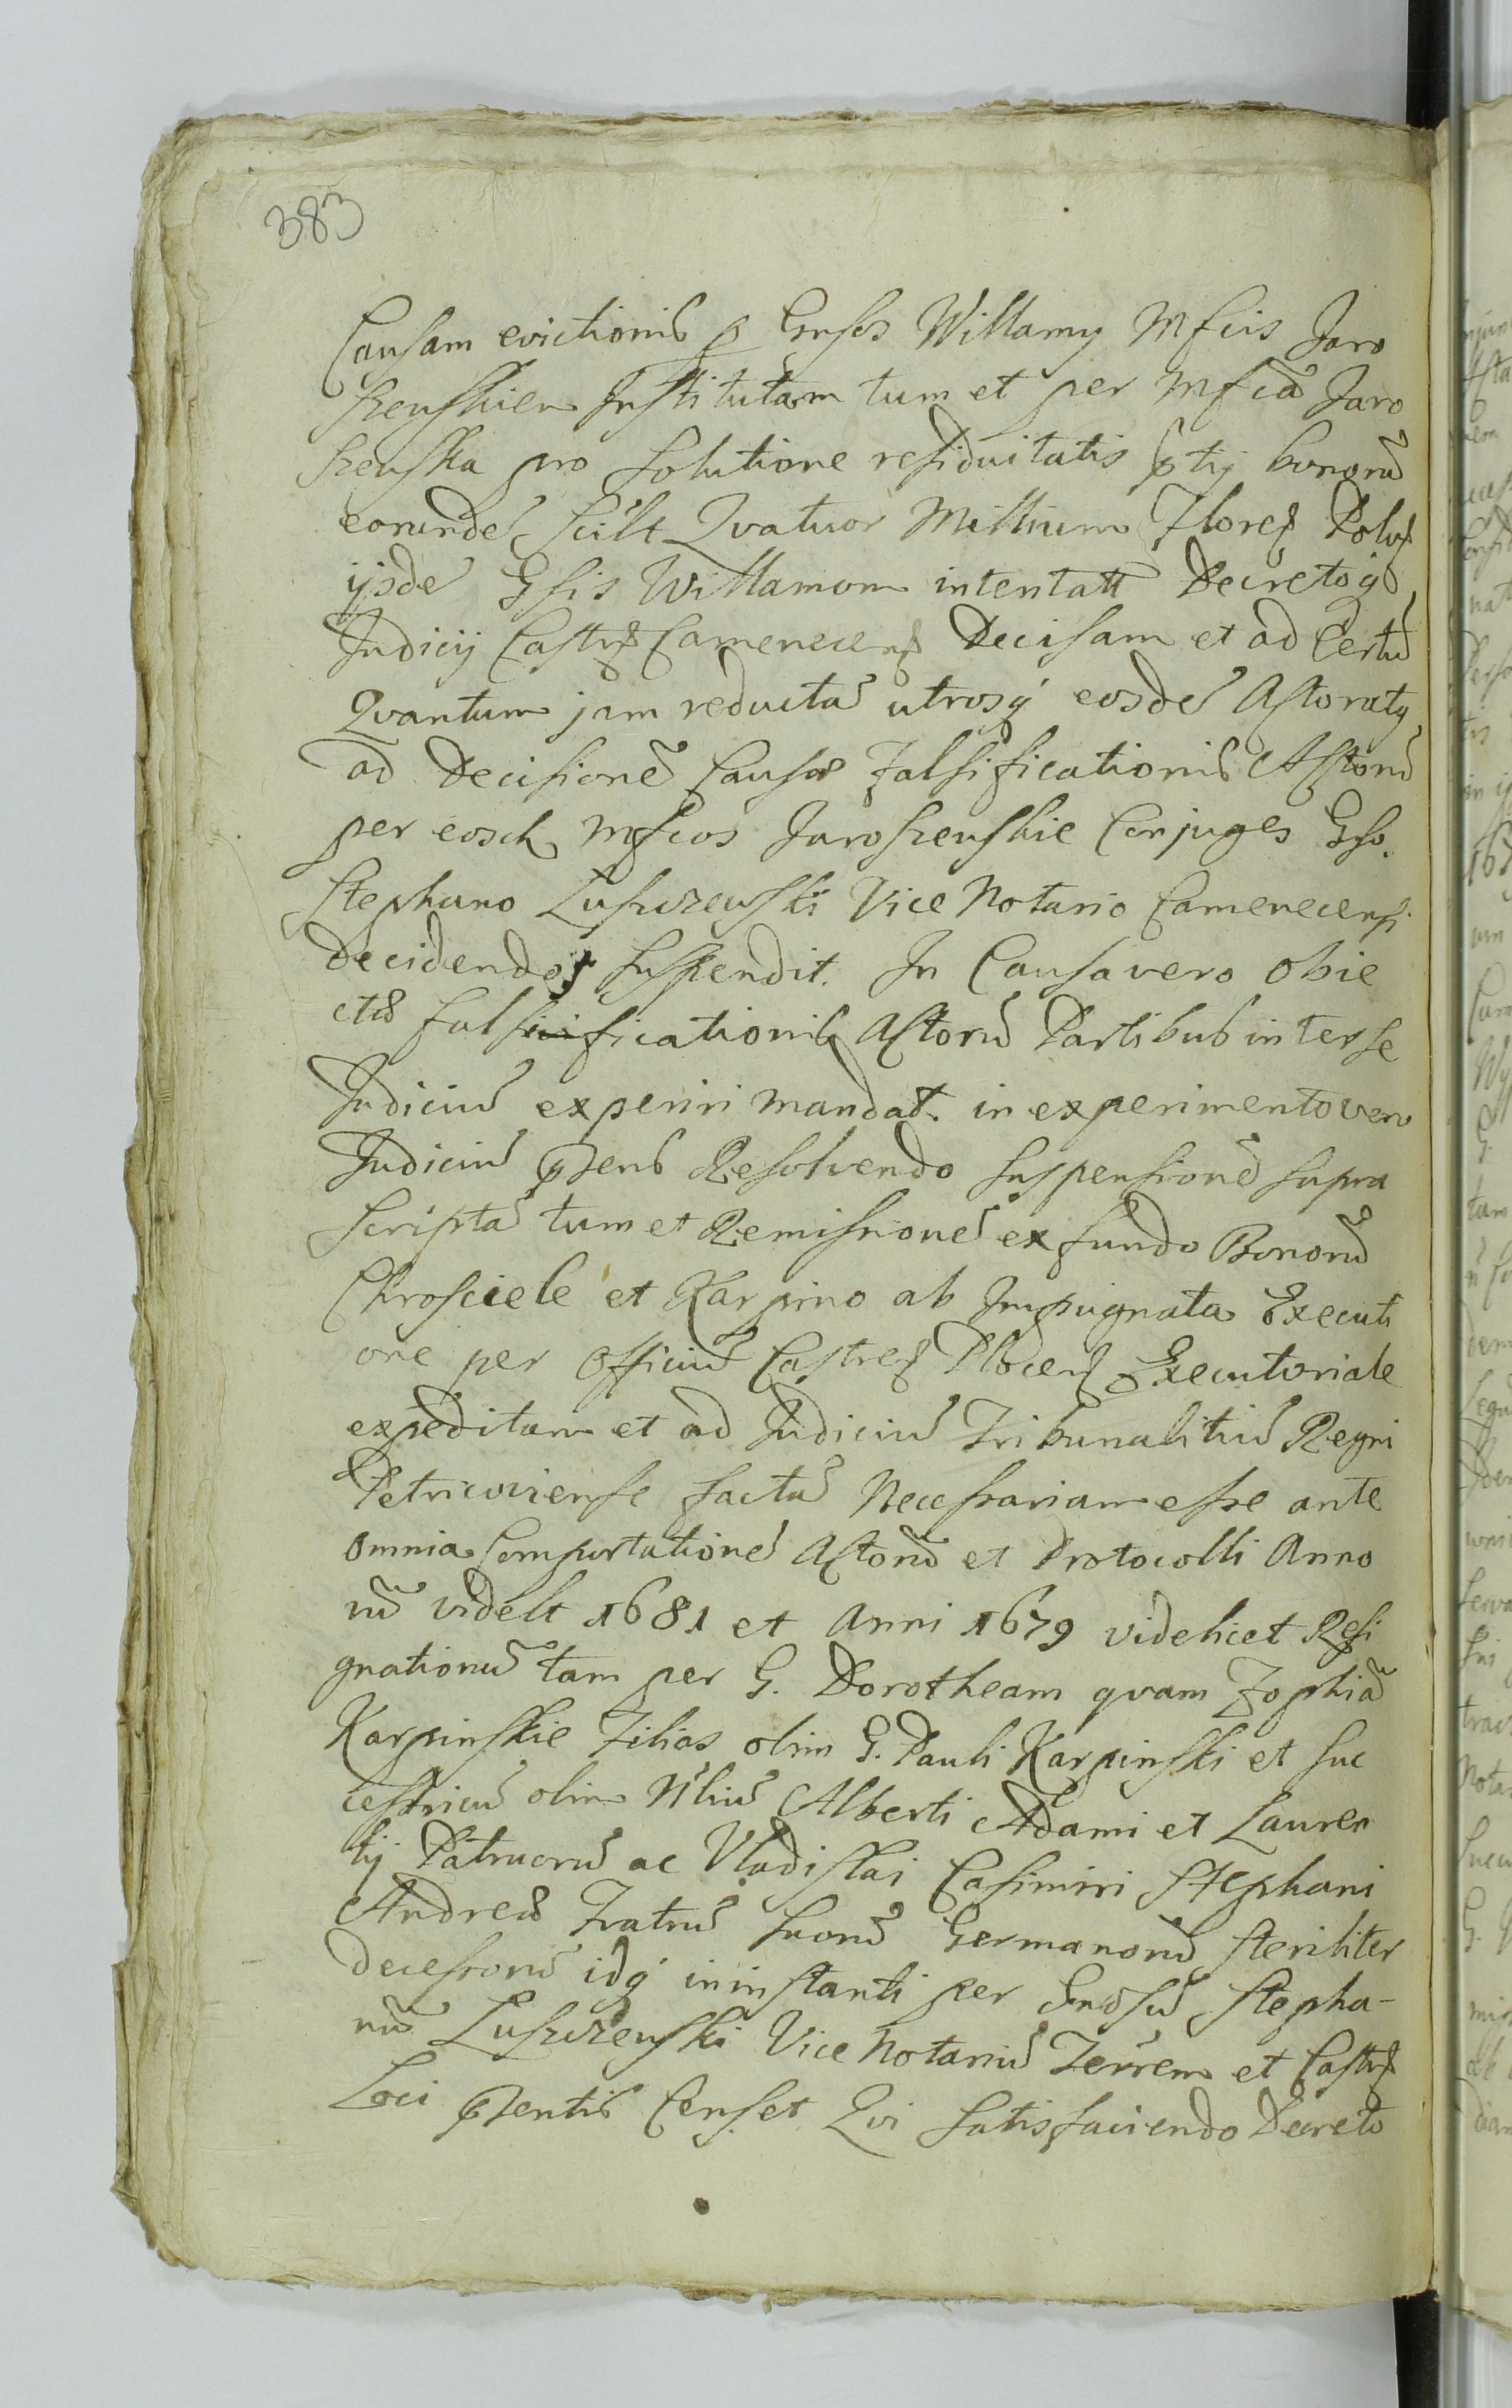 383
Causam evictionis p Gnsos Willamy Mfcis Jaro
szewskiem Institutam tum et per Mfcã Jaro
szewska pro Solutione residuitatis ptij bonorũ
eorundẽ scilt Qvatuor Millium Floreñ Pol
ijsdẽ Gsis Willamom intentatt Decretoq́
Judicij Castr Camenecens Decisam et ad Certũ
Qvantum jam reductã utrosq́ eosdẽ Actoratq
ad Decisionẽ Causæ Falsificationis Actorũ
per eosd Mfcos Jaroszewskie Conjuges Gso.
Stephano Luszczewski Vice Notario Camenecensi
Decidendo suspendit. In Causa vero Obie
ctæ falsificationis Actorũ Partibus inter se
Judiciũ experiri mandat. in experimento vero
Judiciũ pñens Resolvendo suspensionẽ supra
scriptã tum et Remissionẽ ex fundo Bonorũ
Chrosciele et Karpino ab Impugnata Executi
one per Officiũ Castreñ Plocens Executoriale
expeditam et ad Judiciũ Tribunalitiũ Regni
Petricoviense factã Necessariam esse ante
omnia Comportationẽ Actorũ et Protocolli Anno
rũ videlt 1681 et Anni 1679 videlicet Resi
gnationũ tam per G. Dorotheam qvam Zophiã
Karpinskie Filias olim G. Pauli Karpinski et suc
cestricũ olim Nliũ Alberti Adami et Lauren
tij Patruorũ ac Vladislai Casimiri Stephani
Andreæ Fratrũ suorũ Germanorũ steriliter
decessorũ idq́ in instanti per Gnosũ Stepha-
nũ Luszczewski Vice Notariũ Terrem et Castr
Loci pñentis Censet Qvi satisfaciendo Decreto